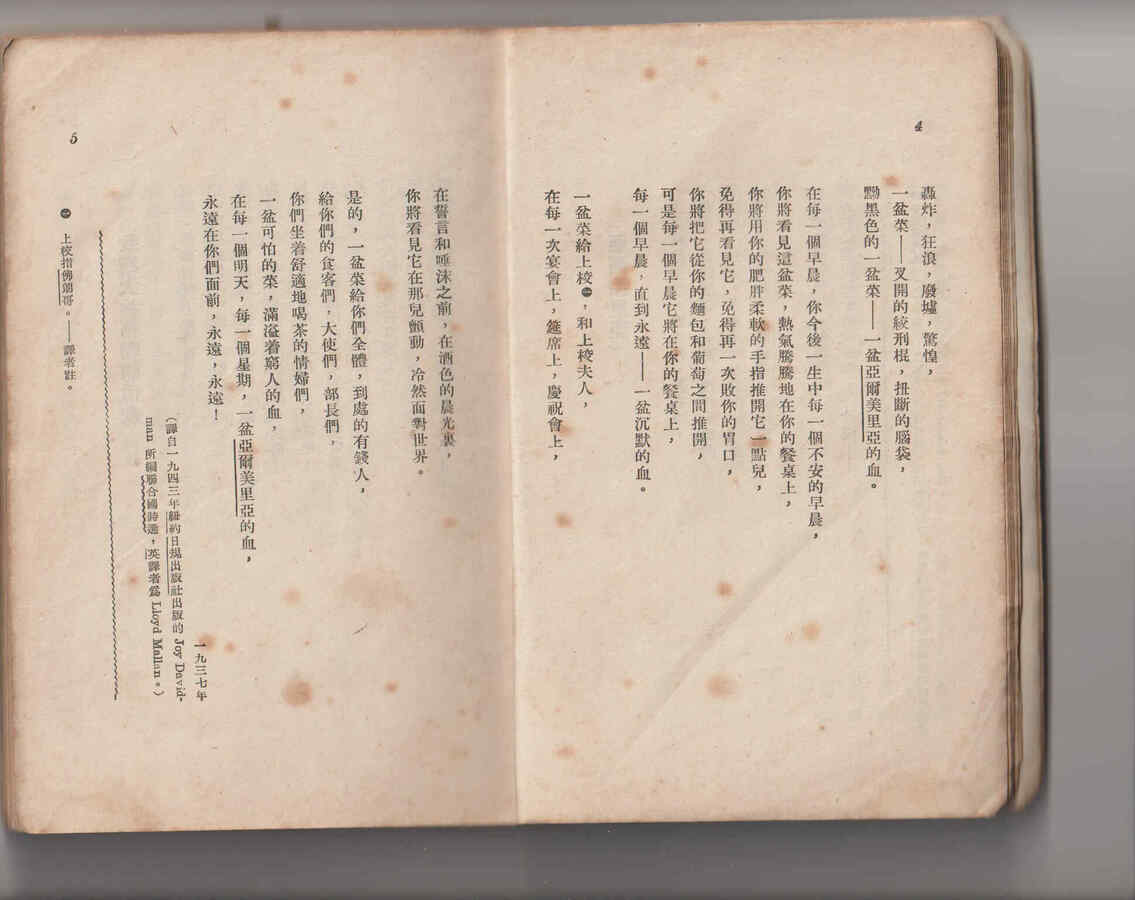 4
轟炸，狂浪，廢墟，驚惶，
一盆菜——叉開的絞刑棍，扭斷的腦袋，
黝黑色的一盆菜——一盆亞爾美里亞的血。
在每一個早晨，你今後一生中每一個不安的早晨，
你將看見這盆菜，熱氣騰騰地在你的餐桌上，
你將用你的肥胖柔軟的手指推開它一點兒，
免得再看見它，免得再一次敗你的胃口，
你將把它從你的麵包和葡萄之間推開，
可是每一個早晨它將在你的餐桌上，
每一個早晨，直到永遠——一盆沉默的血。
一盆菜給上校㊀，和上校夫人，
在每一次宴會上，筵席上，慶祝會上，
在誓言和唾沫之前，在酒色的晨光裏，
你將看見它在那兒顫動，冷然面對世界。
是的，一盆菜給你們全體，到處的有錢人，
給你們的食客們，大使們，部長們，
你們坐着舒適地喝茶的情婦們，
一盆可怕的菜，滿溢着窮人的血，
在每一個明天，每一個星期，一盆亞爾美里亞的血，
永遠在你們面前，永遠，永遠！
一九三七年
（譯自一九四三年紐約日規出版社出版的 Joy David-
man 所編聯合國詩選，英譯者爲 Lloyd Mallan。）
㊀ 上校指佛朗哥。——譯者註。
5